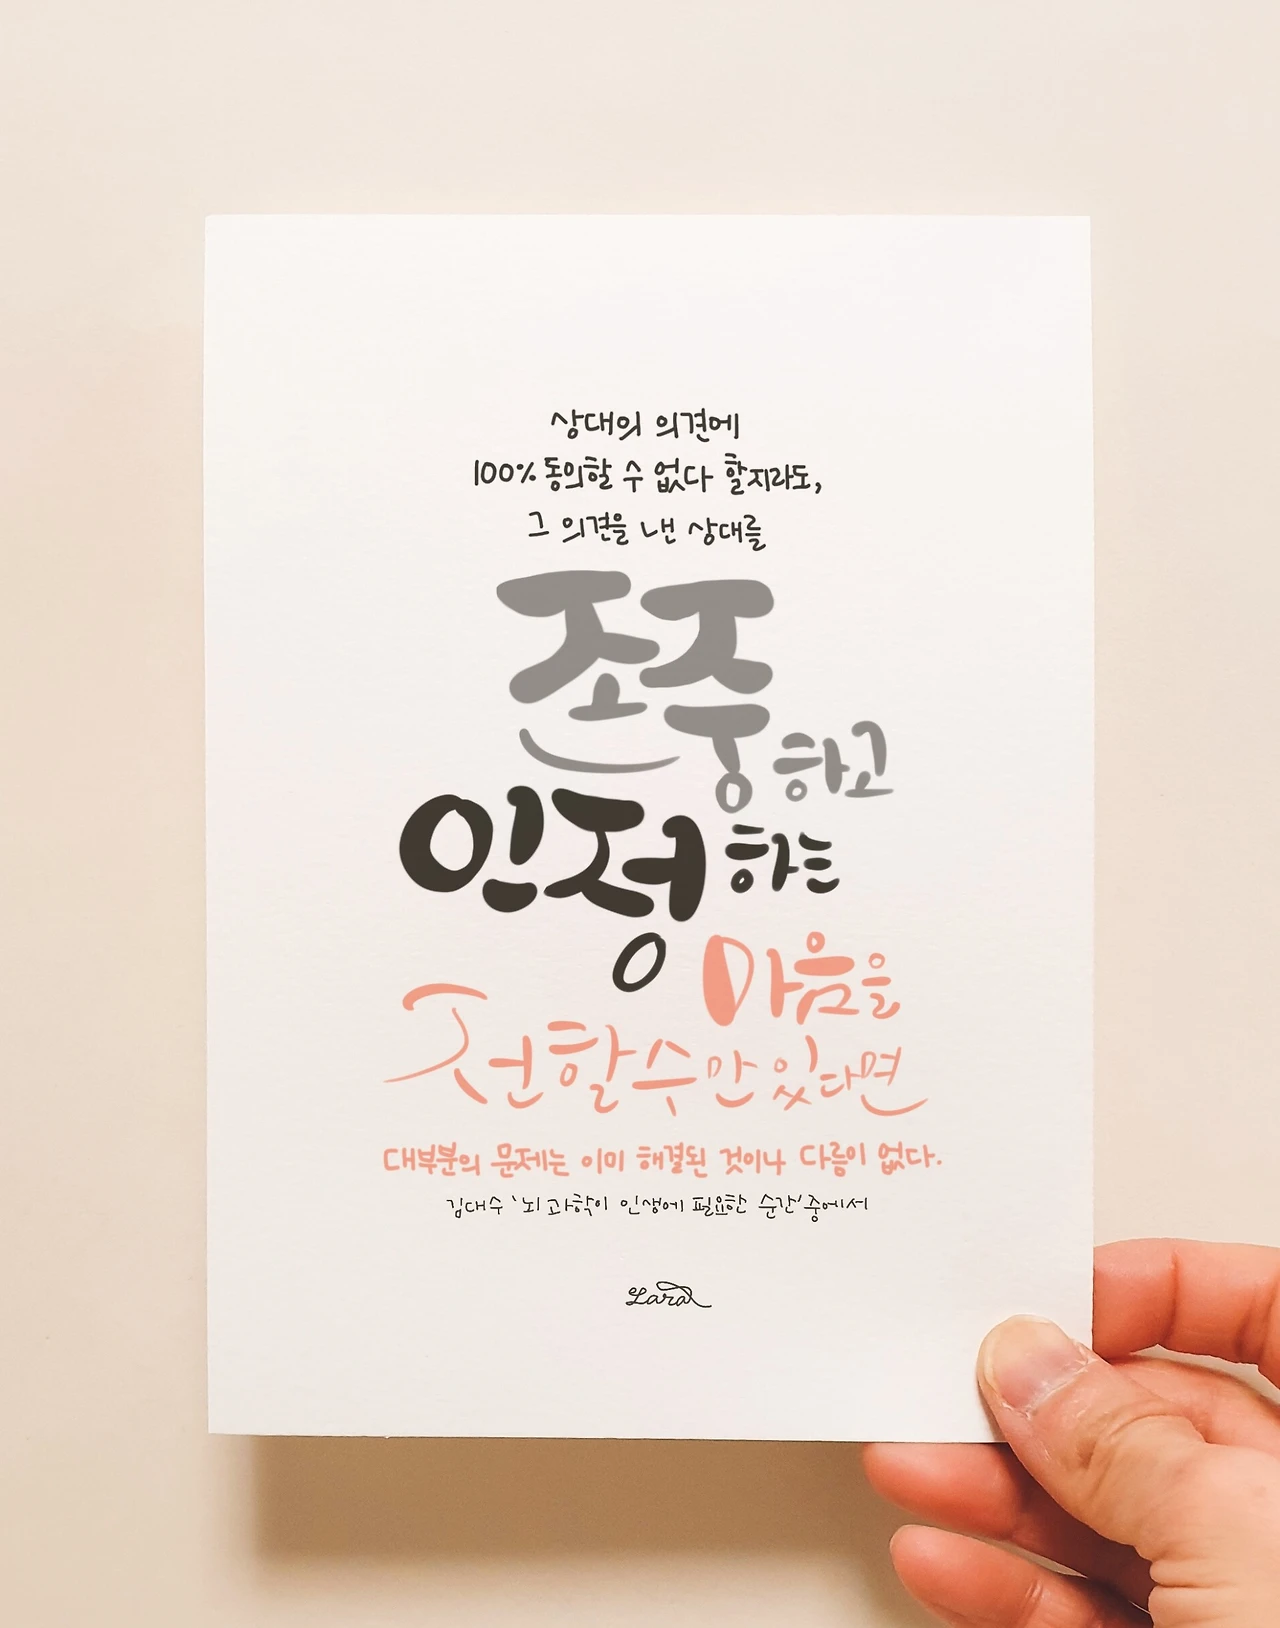 상대의 의견에
100% 동의할 수 없다 할지라도,
그 의견을 낸 상대를
존중하고
인정하는
마음을
전할 수만 있다면
대부분의 문제는 이미 해결된 것이나 다름이 없다.
김대수 '뇌 과학이 인생에 필요한 순간' 중에서
Lara